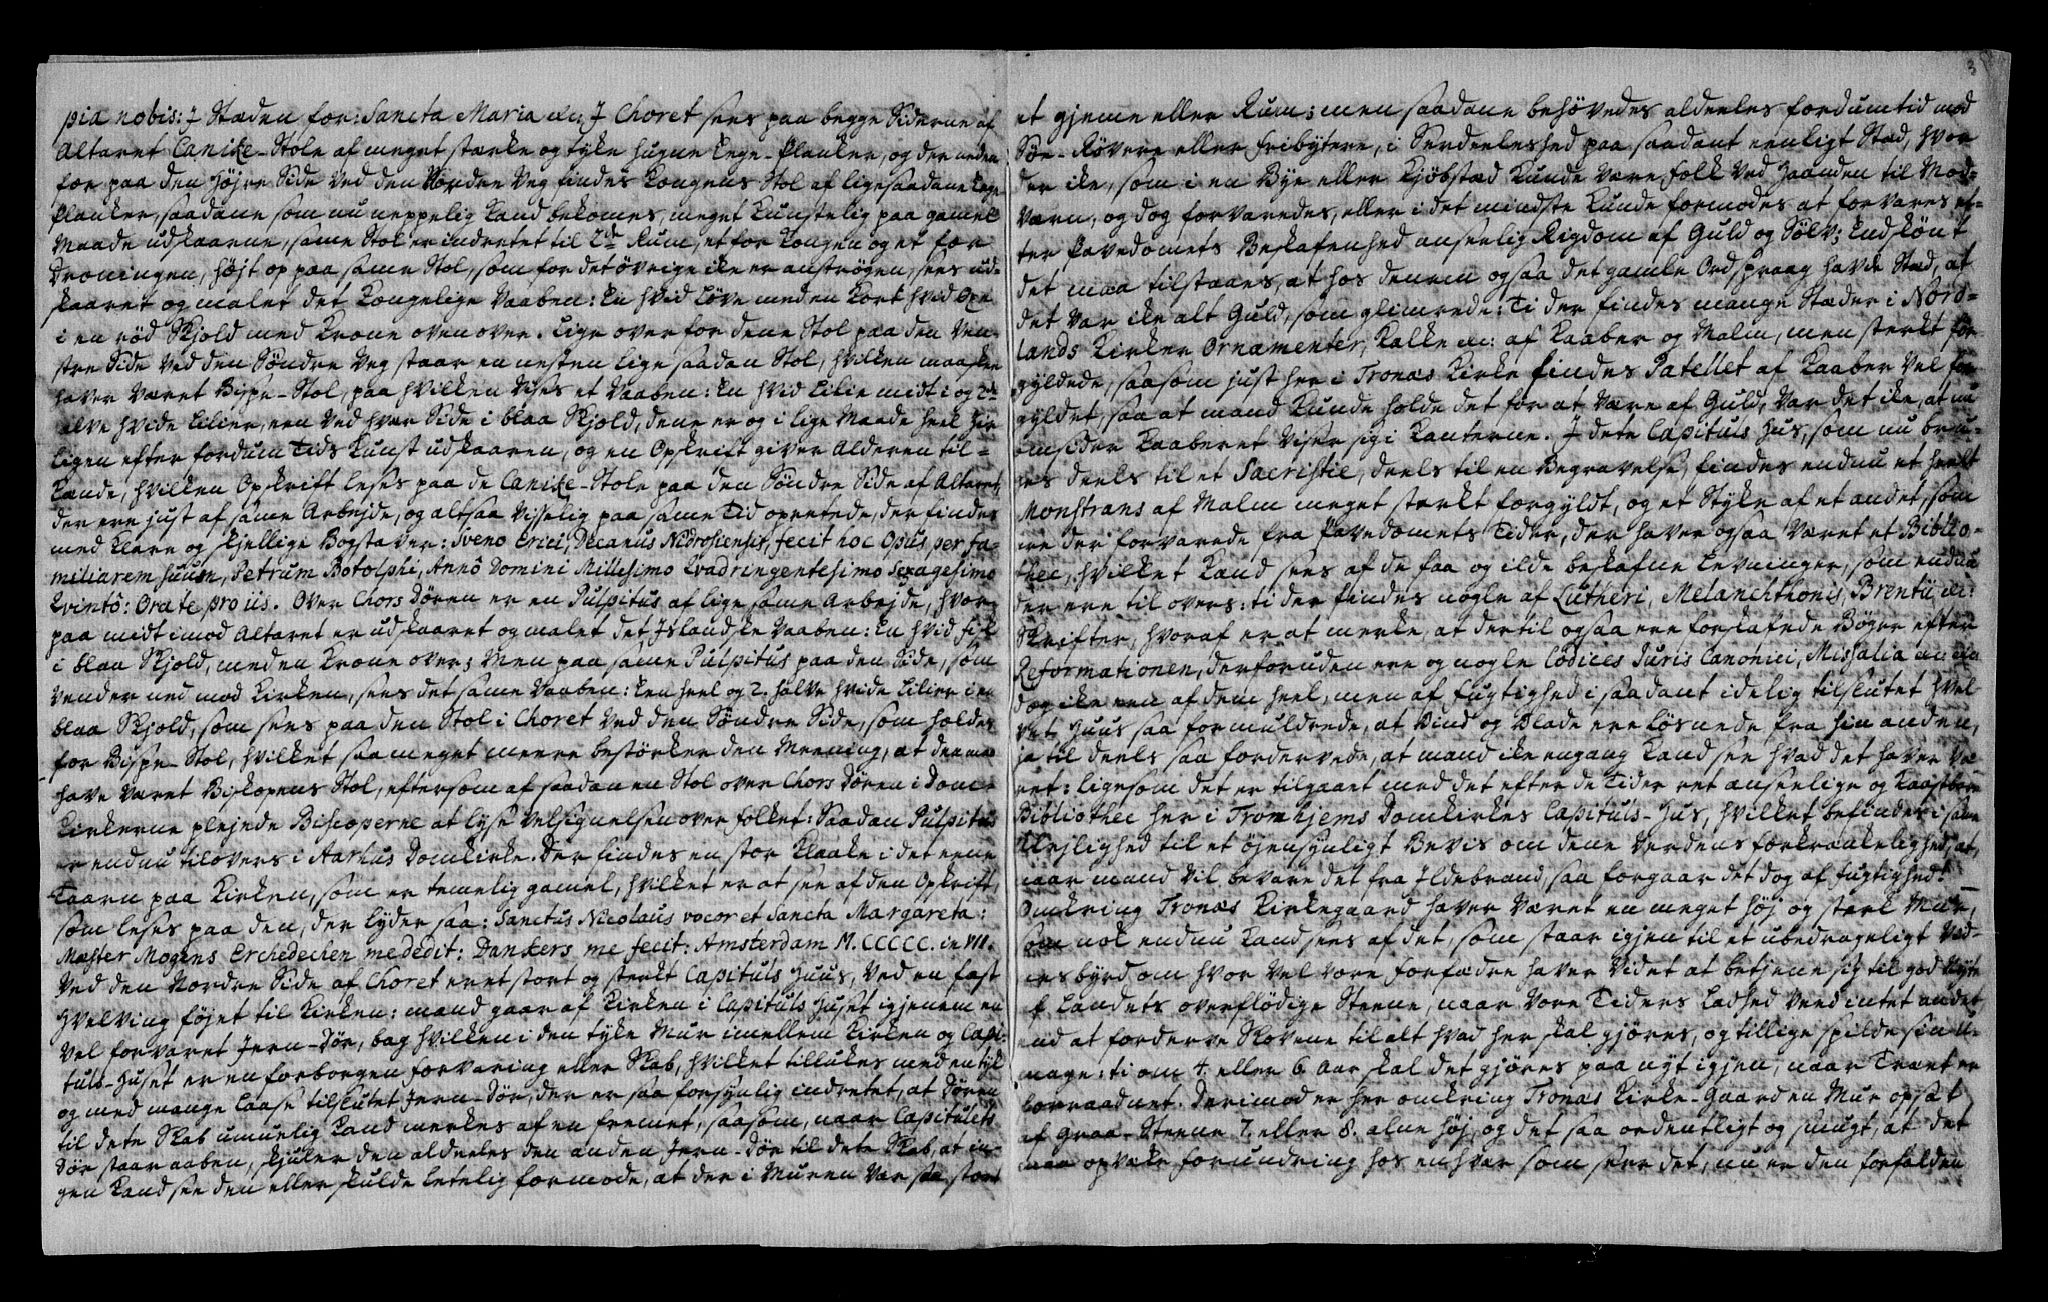 pia nobis: I Stæden for: Sancta Maria etc: I Choret sees paa begge Siderne af
Altaret Canike-Stole af meget stærke og tyke hugne Ege-Planker, og der neden
for paa den Højre Side ved den Nordre Veg findes Kongens Stol af ligesaadane Ege
Planker, saadane som nu neppelig kand bekomes, meget kunstelig paa gamel
Maade udskaarne, same Stol er indretet til 2de Rum, et for Kongen og et for
Droningen, højt op paa same Stol, som for det øvrige ike er anstrøgen, sees ud-
skaaret og malet det Kongelige Vaaben: En hvid Løve med en kort hvid Øxe
i en rød Skjold med Krone oven over. Lige over for dene Stol paa den Ven-
stre Side ved den Søndre Veg staar en nesten lige saadan Stol, hvilken maaskee
haver været Bispe-Stol, paa hvilken vises et Vaaben: En hvid Lilie midt i og 2de
alve hvide Lilier, een ved hver Side i blaa Skjold, dene er og i lige Maade heel zir
ligen efter fordum Tids Kunst udskaaren, og en Opskrift giver Alderen til-
kænde, hvilken Opskrift leses paa de Canike-Stole paa den Søndre Side af Altaret,
der ere just af same Arbejde, og altsaa visselig paa same Tid opretede, der findes
med klare og skjellige Bogstaver: Sveno Erici, Decanus Nidrosiensis, fecit hoc Opus per fa-
miliarem suum, Petrum Botolphi, Annô Domini Millesimo Qvadringentesimo Sexagesimo
Qvintô: Orate pro iis. Over Chors Døren er en Pulpitus af lige same Arbejde, hvor
paa midt imod Altaret er udskaaret og malet det Islandske Vaaben: En hvid Fisk
i blaa Skjold, med en Krone over; Men paa same Pulpitus paa den Side, som
vender ned mod Kirken, sees det same Vaaben: Een heel og 2. halve hvide Lilier i en
blaa Skjold, som sees paa den Stol i Choret ved den Søndre Side, som holdes
for Bispe-Stol, hvilket saa meget meere bestørker den Meening, at den maa
have været Biskopens Stol, eftersom af saadan en Stol over Chors Døren i Dom-
Kirkerne plejede Biscoperne at lyse Velsignelsen over Folket: Saadan Pulpitus
er endnu tilovers i Aarhus Domkirke. Der findes en stor Klokke i det eene
Taarn paa Kirken, som er temelig gamel, hvilket er at see af den Opskrift,
som leses paa den, der lyder saa: Sanctus Nicolaus vocor et Sancta Margareta:
Mæster Mogens Erchedechen me dedit: Dankers me fecit: Amsterdam M. CCCCC. in VII.
Ved den Nordre Side af Choret er et stort og sterkt Capituls Huus, ved en fast
Hvelving føjet til Kirken: mand gaar af Kirken i Capituls Huset igjenem en
vel forvaret Jern-Dør, bag hvilken i den tyke Mur imellem Kirken og Capi-
tuls-Huset er en forborgen forvaring eller Skab, hvilket tillukes med en tyk
og med mange Laase tilslutet Jern-Dør, der er saa forsynlig indretet, at Døren
til dete Skab umuelig kand merkes af en fremet, saasom, naar Capitulets
Dør staar aaben, skjuler den aldeeles den anden Jern-Dør til dete Skab, at in-
gen kand see den eller skulde letelig formode, at der i Muren var saa stort
3
et gjeme eller Rum; men saadane behøvedes aldeeles fordumtid mod
Søe-Røvere eller Fribytere, i Serdeeleshed paa saadant eenligt Stæd, hvor
der ike, som i en Bye eller Kjøbstæd kunde være Folk ved Haanden til Mod-
værn, og dog forvaredes, eller i det mindste kunde formodes at forvares ef-
ter Pavedomets Beskafenhed anseelig Rigdom af Guld og Sølv; Endskønt
det maa tilstaaes, at hos denem ogsaa det gamle Ordspraag havde Stæd, at
det var ike alt Guld, som glimrede: Ti der findes mange Stæder i Nord-
lands Kirker Ornamenter, Kalke etc: af Kaaber og Malm, men sterkt for
gyldede, saasom just her i Tronæs Kirke findes Patellet af Kaaber vel for
gyldet, saa at mand kunde holde det for at være af Guld, var det ike, at nu
omsider Kaaberet viser sig i Kanterne. I dete Capituls Hus, som nu bru-
ges deels til et Sacristie, deels til en Begravelse, findes endnu et heelt
Monstrans af Malm meget sterkt forgyldt, og et Styke af et andet, som
ere der forvarede fra Pavedomets Tider, der haver ogsaa været et Biblio-
thec, hvilket kand sees af de faa og ilde beskafne Levninger, som endnu
der ere til overs: ti der findes nogle af Lutheri, Melanchthonis, Brentii etc:
Skrifter, hvoraf er at merke, at dertil ogsaa ere forskafede Bøger efter
Reformationen, derforuden ere og nogle Codices Juris Canonici, Missalia etc etc
dog ike een af dem heel, men af fugtighed i saadant idelig tilslutet Hvel-
vet Huus saa formuldrede, at Bind og Blade ere løsnede fra hin anden,
ja til deels saa fordervede, at mand ike engang kand see hvad det haver væ-
ret: ligesom det er tilgaaet med det efter de Tider ret anseelige og kaastbare
Bibliothec her i Tromhjems Domkirkes Capituls-Hus, hvilket befindes i same
Beskaffelighed til et øjensynligt Bevis om dene Verdens forkrænkelighed, at,
naar mand vil bevare det fra Ildebrand, saa forgaar det dog af fugtighed!
Omkring Tronæs Kirkegaard haver været en meget høj og sterk Mur,
som nok endnu kand sees af det, som staar igjen til et ubedrageligt Vid-
nesbyrd om hvor vel vore Forfædre haver vidst at betjene sig til god Nyte
af Landets overflødige Steene, naar vore Tiders Ladhed veed intet andet
end at forderve Skovene til alt hvad her skal gjøres, og tillige spilde sin U-
mage: ti om 4. eller 6 Aar skal det gjøres paa nyt igjen, naar Træet er
forraadnet. Derimod er her omkring Tronæs Kirke-Gaard en Mur opsat
af Graa-Steene 7. eller 8. alne høj, og det saa ordentligt og smugt, at det
maa opveke forundring hos enhver som seer det, nu er den forfalden